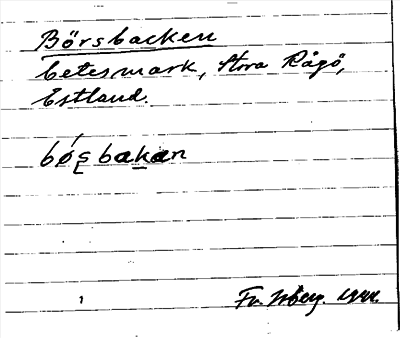 Börsbacken
betesmark, Stora Rågö,
Estland.
bǿʂbakan
Fr.